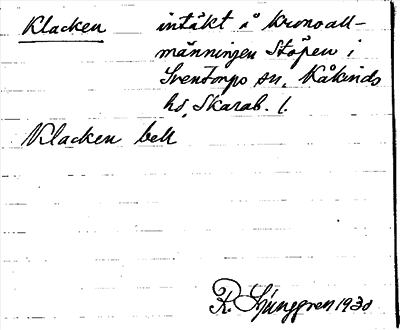 Klacken intäkt å kronoall-
männingen Stöpen i
Sventorps sn, Kåkinds
hd, Skarab. l.
Klacken bek
K. G. Ljunggren 1930